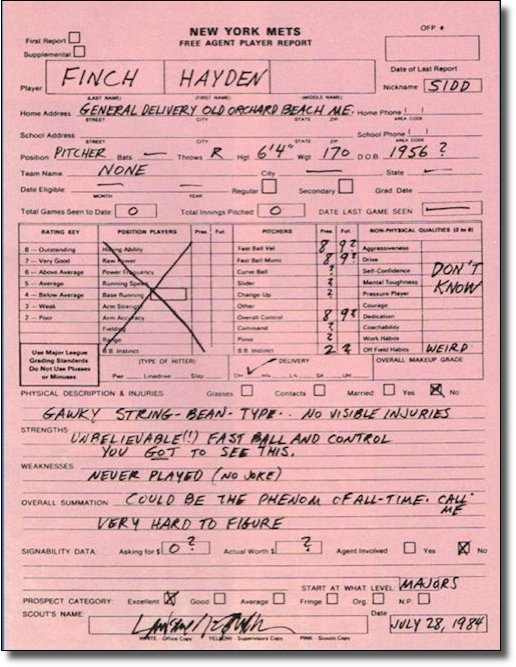 NEW YORK METS
FREE AGENT PLAYER REPORT
OFP #
First Report
Supplemental
Date of Last Report
Player FINCH HAYDEN Nickname SIDD
(LAST NAME) (FIRST NAME) (MIDDLE NAME)
Home Address GENERAL DELIVERY OLD ORCHARD BEACH ME. Home Phone ( )
STREET CITY STATE ZIP AREA CODE
School Address School Phone ( )
STREET CITY STATE ZIP AREA CODE
Position PITCHER Bats — Throws R Hgt 6'4" Wgt 170 D.O.B. 1956 ?
Team Name NONE City — State —
Date Eligible: — — Regular Secondary Grad. Date
MONTH YEAR
Total Games Seen to Date 0 Total Innings Pitched 0 DATE LAST GAME SEEN —
RATING KEY POSITION PLAYERS Pres Fut PITCHERS Pres Fut NON-PHYSICAL QUALITIES (2 to 8)
8 — Outstanding Hitting Ability Fast Ball Vel 8 9? Aggressiveness
7 — Very Good Raw Power Fast Ball Mvmt 8 9? Drive
6 — Above Average Power Frequency Curve Ball ? Self-Confidence DON'T
5 — Average Running Speed Slider ? Mental Toughness KNOW
4 — Below Average Base Running Change-Up ? Pressure Player
3 — Weak Arm Strength Other Courage
2 — Poor Arm Accuracy Overall Control 8 9? Dedication
Fielding Command ? Coachability
Range Poise ? Work Habits
B.B. Instinct B.B. Instinct 2 2 Off Field Habits WEIRD
Use Major League
Grading Standards
Do Not Use Plusses
or Minuses
(TYPE OF HITTER) DELIVERY OVERALL MAKEUP GRADE
Pwr Linedrive Slap OH SA UH
PHYSICAL DESCRIPTION & INJURIES Glasses Contacts Married Yes X No
GAWKY STRING-BEAN-TYPE.. NO VISIBLE INJURIES
STRENGTHS UNBELIEVABLE(!) FAST BALL AND CONTROL
YOU GOT TO SEE THIS.
WEAKNESSES NEVER PLAYED (NO JOKE)
OVERALL SUMMATION COULD BE THE PHENOM OF ALL-TIME. CALL
ME
VERY HARD TO FIGURE
SIGNABILITY DATA: Asking for $ 0? Actual Worth $ ? Agent Involved Yes X No
START AT WHAT LEVEL MAJORS
PROSPECT CATEGORY: Excellent X Good Average Fringe Org. N.P.
SCOUT'S NAME Date JULY 28, 1984
WHITE - Office Copy YELLOW - Supervisors Copy PINK - Scouts Copy